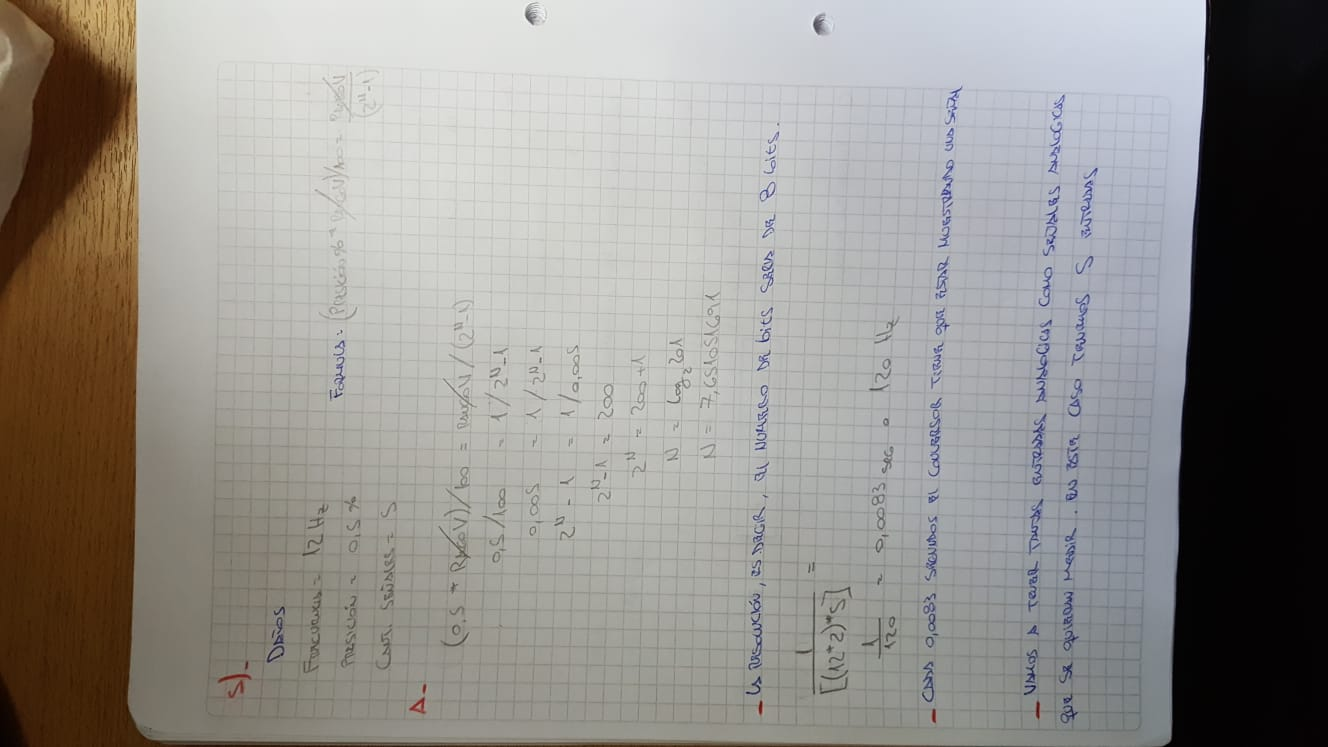 5)-
DATOS
FRECUENCIA = 12 Hz
PRESICIÓN = 0,5 %
CANT. SEÑALES = 5
FORMULA = (PRESICIÓN % * RANGO V)/100 = RANGO V/(2^N-1)
A-
(0,5 * RANGO V)/100 = RANGO V/(2^N-1)
0,5/100 = 1/2^N-1
0,005 = 1/2^N-1
2^N-1 = 1/0,005
2^N-1 = 200
2^N = 200+1
N = log2 201
N = 7,651051691
- LA RESOLUCIÓN, ES DECIR, EL NUMERO DE bits SERA DE 8 bits.
1/[(12*2)*5] =
1/120 = 0,0083 seg o 120 Hz
- CADA 0,0083 SEGUNDOS EL CONVERSOR TIENE QUE ESTAR MUESTREANDO UNA SEÑAL
- VAMOS A TENER TANTAS ENTRADAS ANALOGICAS COMO SEÑALES ANALOGICAS
QUE SE QUIERAN MEDIR. EN ESTE CASO TENEMOS 5 ENTRADAS